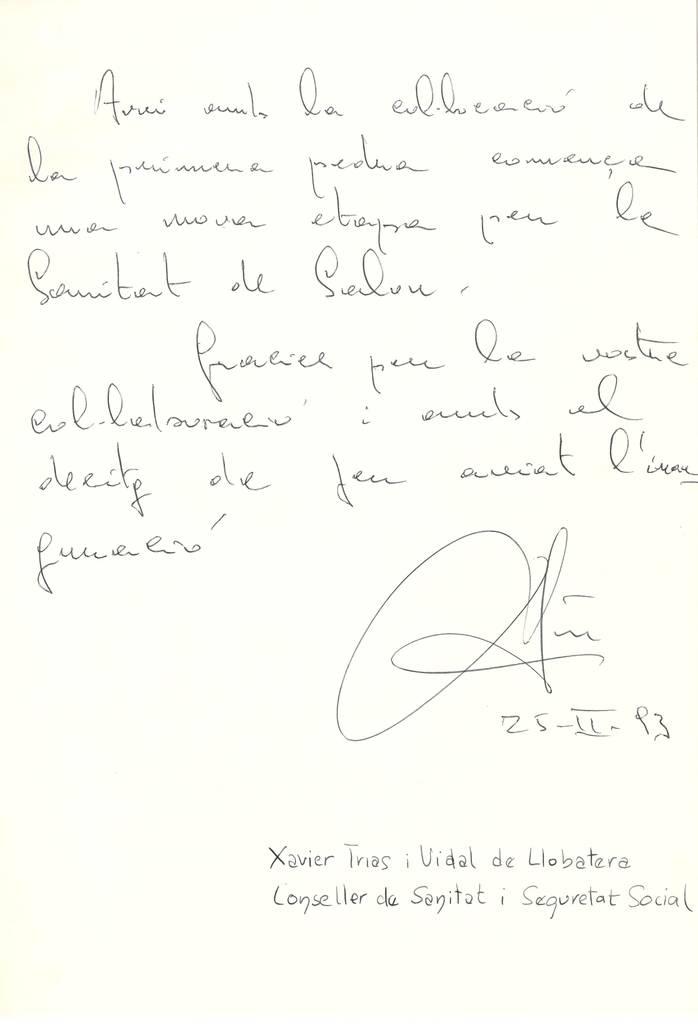 Avui amb la col·locació de
la primera pedra comença
una nova etapa per la
Sanitat de Salou.
Gracies per la vostra
col·laboració i amb el
desitg de fer aviat l'inau
guració
25-II-93
Xavier Trias i Vidal de Llobatera
Conseller de Sanitat i Seguretat Social